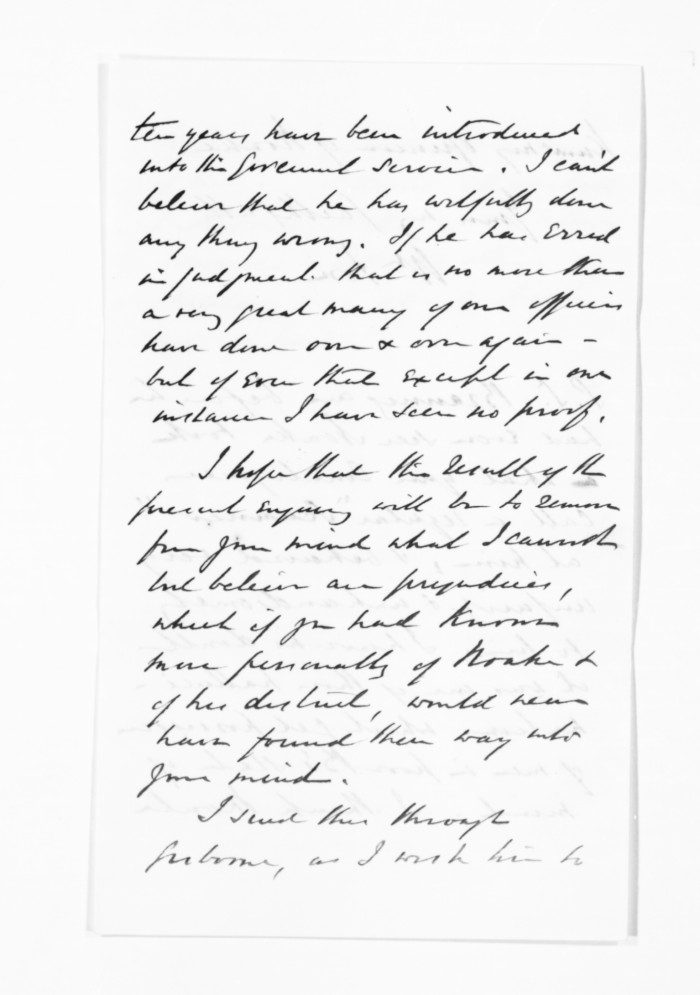 ten years have been introduced
into the Government service. I can't
believe that he has wilfully done
any thing wrong. If he has erred
in judgment. that is no more than
a very great many of our officers
have done over & over again –
but of even that except in one
instance I have seen no proof.
I hope that the result of the
present enquiry will be to remove
from your mind what I cannot
but believe are prejudices,
which if you had known
more personally of Noake &
of his district, would never
have found their way into
your mind.
I send this through
Gisborne, as I wish him to